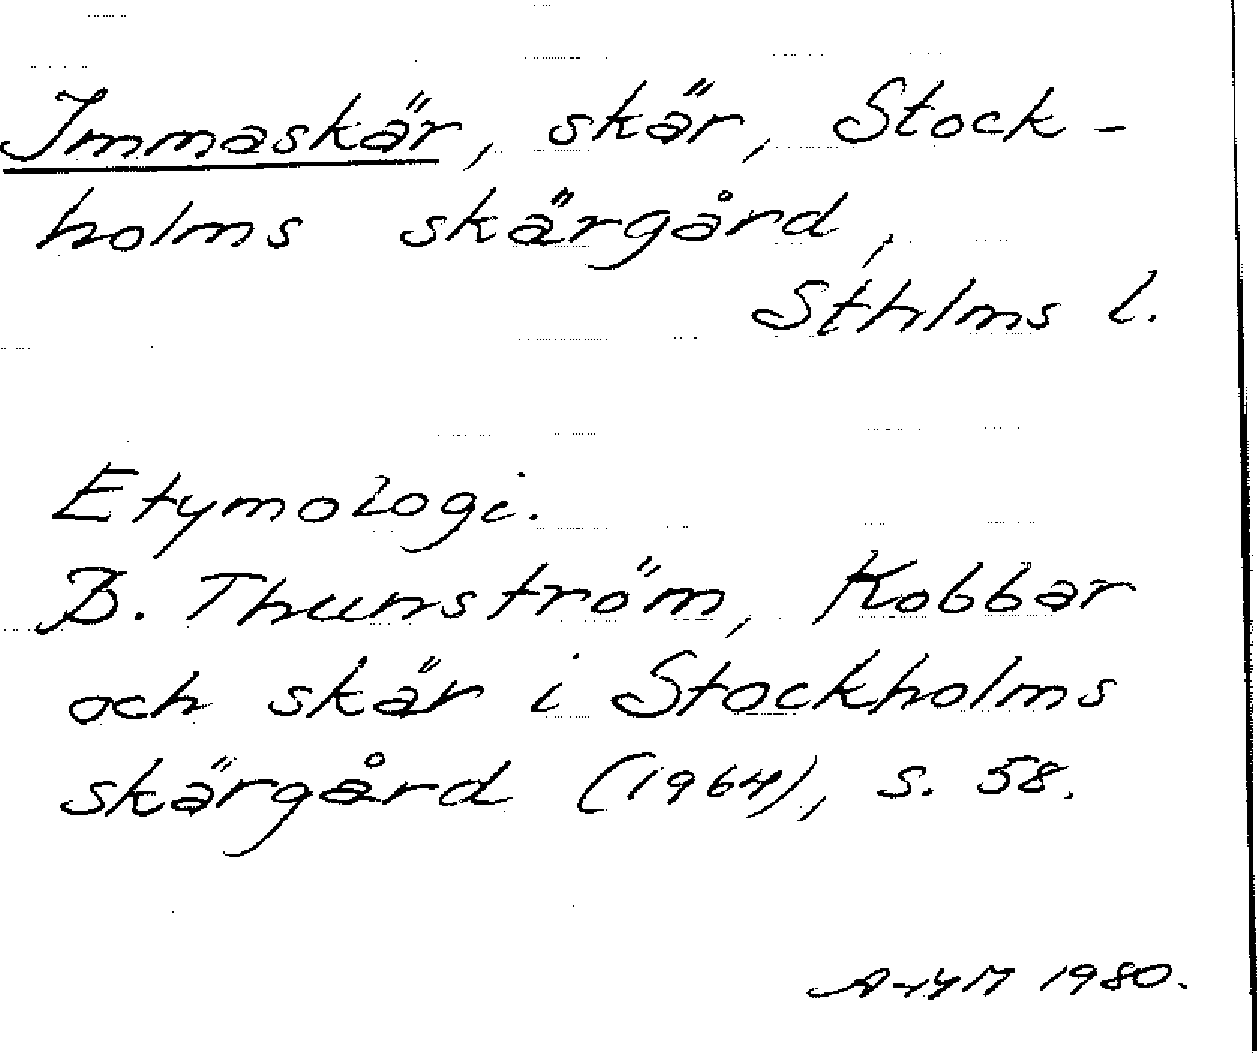 Immaskär, skär, Stock-
holms skärgård,
Sthlms l.
Etymologi.
B. Thunström, Kobbar
och skär i Stockholms
skärgård (1964), s. 58.
1980.